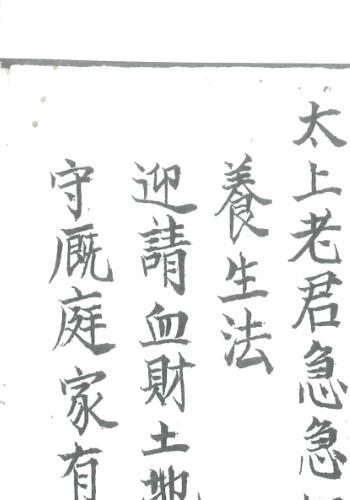 太上老君急急
養生法
迎請血財土地
守厩庭家有